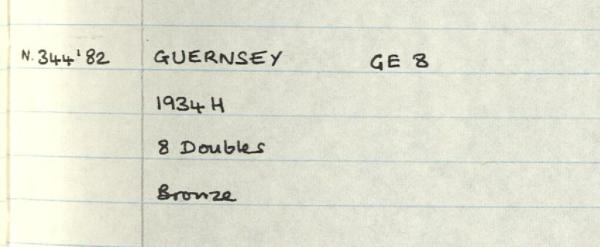 N.344'82 GUERNSEY GE 8
1934 H
8 Doubles
Bronze